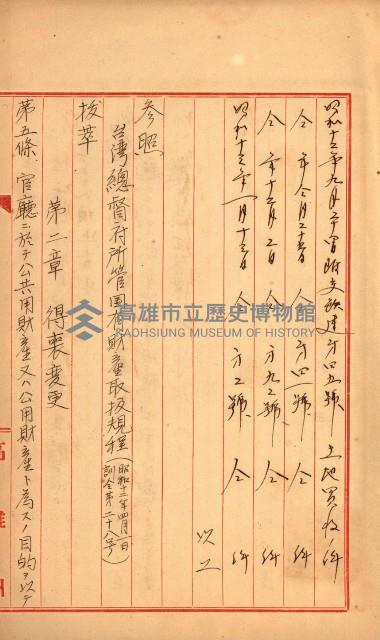 昭和十二年九月二十四日附高雄建第四五號 土地買收ノ件
仝 年仝月二十日 仝 第四一號 仝 件
仝 年十二月二日 仝 第九二號 仝 件
昭和十三年一月十三日 仝 第二號 仝 件
以上
参照
台湾總督府所管国有財産取扱規程(昭和十二年四月一日訓令第二十八号)
抜萃
第二章 得喪変更
第五條 官廳ニ於テ公共用財産又ハ公用財産ト為スノ目的ヲ以テ
高雄市立歷史博物館
KAOHSIUNG MUSEUM OF HISTORY
高雄州